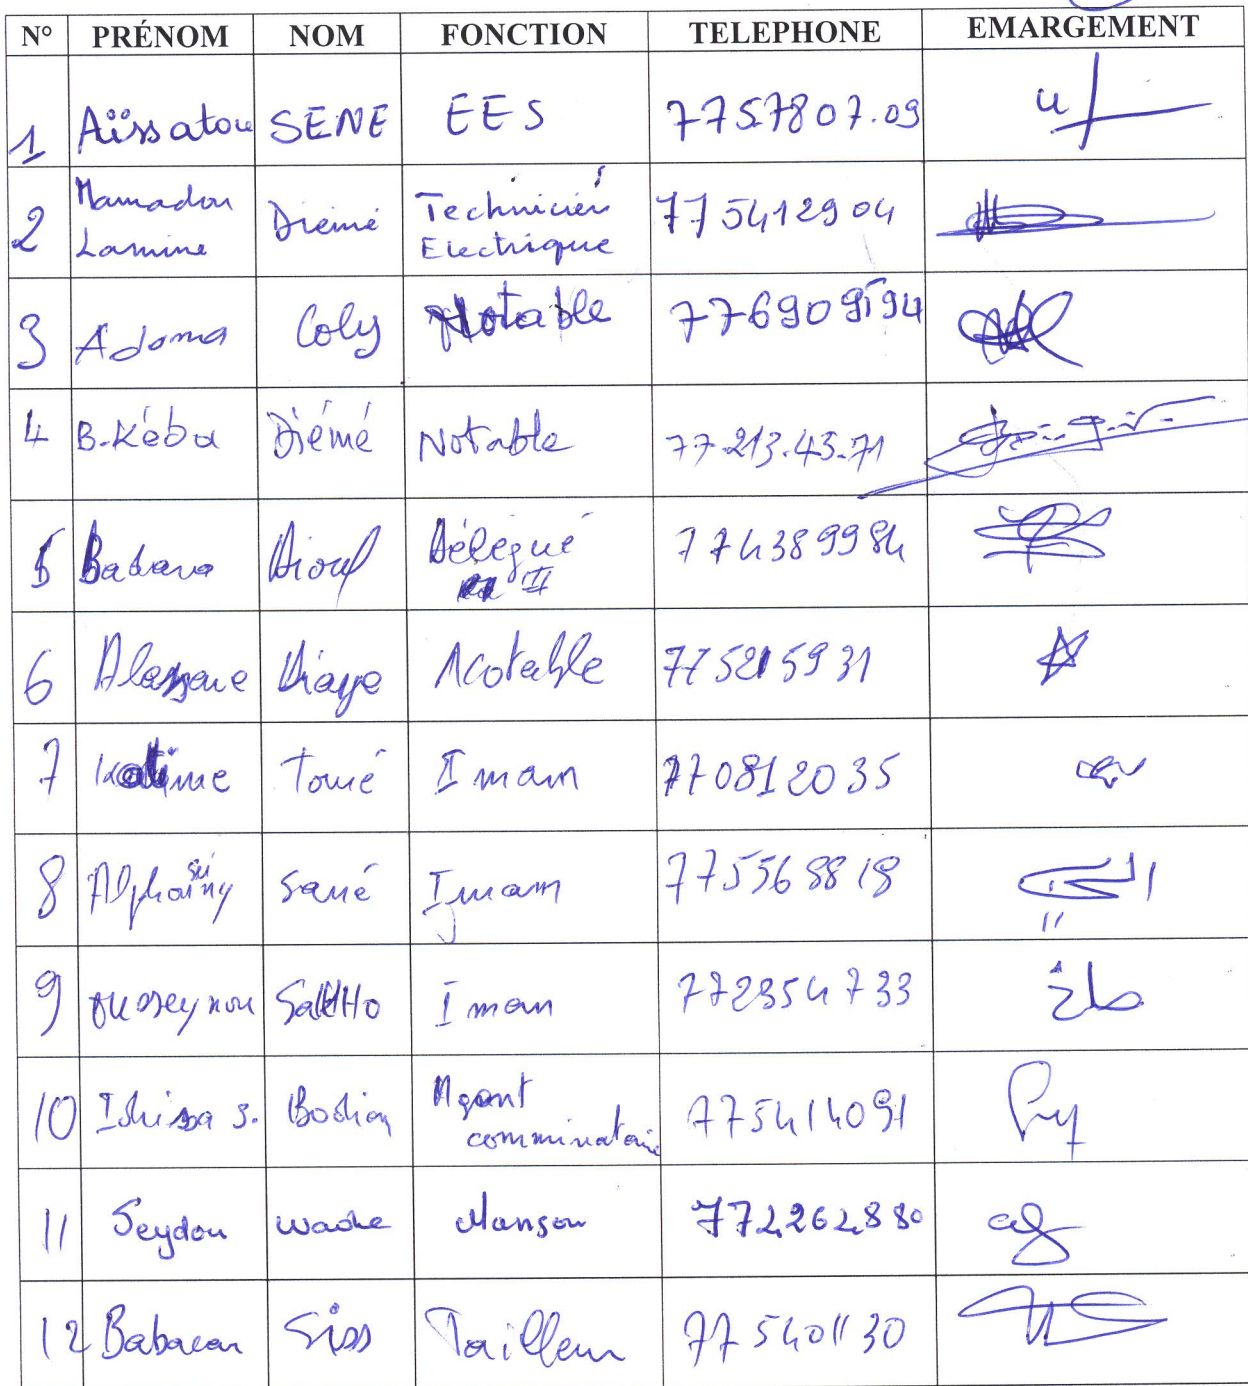 N° PRÉNOM NOM FONCTION TELEPHONE EMARGEMENT
1 Aïssatou SENE EES 7757807.09
2 Mamadou Lamine Diémé Technicien Electrique 775412904
3 Adama Coly Notable 776909594
4 B.Kéba Diémé Notable 77.213.43.71
5 Babara Diouf Délégué II 774389984
6 Alassane Diaye Notable 775215931
7 Touré Imam 770812035
8 Sané Imam 775568818
9 Ousseynou Imam 772354733
10 Idrissa S. Bodian Agent 775414091
11 Seydou Wade 772262880
12 Babacar Siss Tailleur 775401130